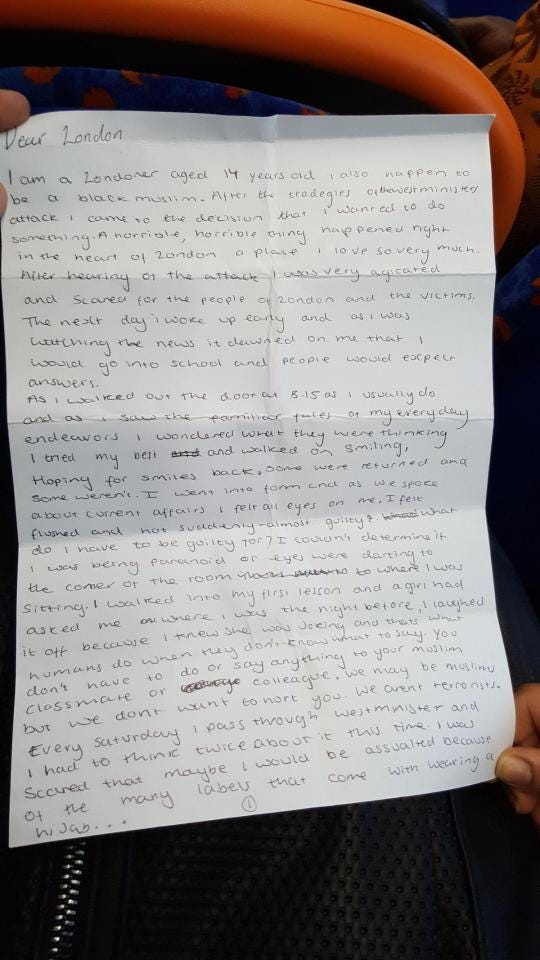 Dear London
I am a Londoner aged 14 years old i also happen to
be a black muslim. After the tradegies ofthewestminister
attack i came to the decision that i wanted to do
something. A horrible, horrible thing happened right
in the heart of London a place i love so very much.
After hearing of the attack i was very agitated
and scared for the people of London and the victims.
The next day i woke up early and as i was
watching the news it dawned on me that I
would go into school and people would expect
answers.
As i walked out the door at 8.15 as i usually do
and as i saw the familiar faces of my everyday
endeavors i wondered what they were thinking
I tried my best and and walked on smiling,
Hoping for smiles back. some were returned and
some weren't. I went into form and as we spoke
about current affairs i felt all eyes on me. I felt
flushed and hot suddenly-almost guilty?. what
do i have to be guilty for? I couldn't determine if
i was being paranoid or eyes were darting to
the corner of the room to where I was
sitting. I walked into my first lesson and a girl had
asked me where i was the night before, i laughed
it off because i knew she was joking and thats what
humans do when they don't know what to say. You
don't have to do or say anything to your muslim
classmate or colleague. we may be muslims
but we dont want to hort you. we arent terrorists.
Every saturday i pass through westminister and
I had to think twice about it this time. I was
scared that maybe i would be assualted because
of the many labels that come with wearing a
hijab...
1